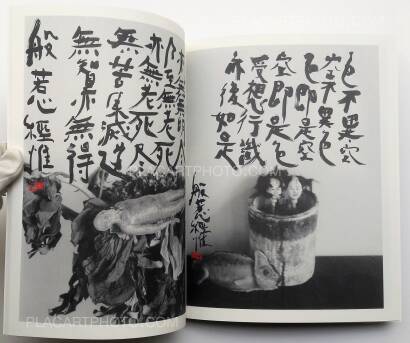 色不異空
空不異色
色即是空
空即是色
受想行識
亦復如是
般若心経惟
乃至無老死
亦無老死尽
無苦集滅道
無智亦無得
般若心経惟
PLACARTPHOTO.COM
PLACARTPHOTO.COM
PLACARTPHOTO.COM